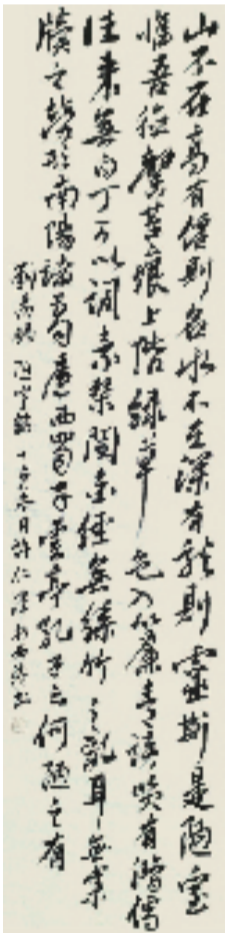 山不在高有僊則名水不在深有龍則靈斯是陋室
惟吾德馨苔痕上階綠草色入簾青談笑有鴻儒
往來無白丁可以調素琴閱金經無絲竹之亂耳無案
牘之勞形南陽諸葛廬西蜀子雲亭孔子云何陋之有
劉禹錫 陋室銘 冬日許仁